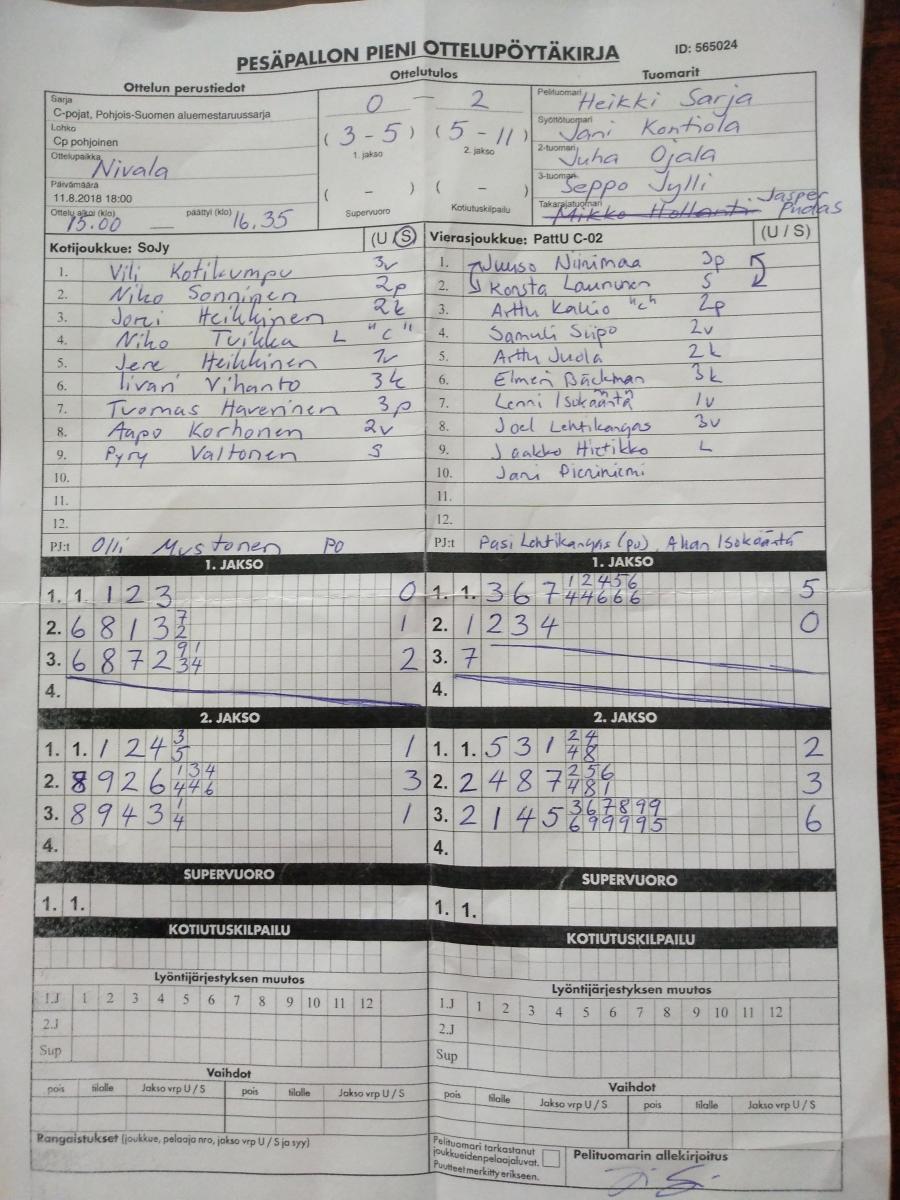 PESÄPALLON PIENI OTTELUPÖYTÄKIRJA
ID: 565024
Ottelun perustiedot
Ottelutulos
Tuomarit
Sarja
C-pojat, Pohjois-Suomen aluemestaruussarja
Lohko
Cp pohjoinen
Ottelupaikka Nivala
Päivämäärä
11.8.2018 18:00
Ottelu alkoi (klo) päättyi (klo)
15.00 — 16.35
0 — 2
( 3 - 5 ) ( 5 - 11 )
1. jakso 2. jakso
( - ) ( - )
Supervuoro Kotiutuskilpailu
Pelituomari Heikki Sarja
Syöttötuomari Jani Kontiola
2-tuomari Juha Ojala
3-tuomari Seppo Jylli
Takarajatuomari Mikko Hollanti Jasper Pudas
Kotijoukkue: SoJy (U/S)
1. Vili Kotikumpu 3v
2. Niko Sonninen 2p
3. Joni Heikkinen 2k
4. Niko Tuikka L "c"
5. Jere Heikkinen 1v
6. Iivari Vihanto 3k
7. Tuomas Haverinen 3p
8. Aapo Korhonen 2v
9. Pyry Valtonen S
10.
11.
12.
PJ:t Olli Mustonen PO
Vierasjoukkue: PattU C-02 (U / S)
1. Juuso Niinimaa 3p
2. Konsta Laununen S
3. Arttu Kallio "c" 2p
4. Samuli Siipo 2v
5. Arttu Juola 2k
6. Elmeri Bäckman 3k
7. Lenni Isokääntä 1v
8. Joel Lehtikangas 3v
9. Jaakko Hietikko L
10. Jani Pieniniemi
11.
12.
PJ:t Pasi Lehtikangas (po), Ahan Isokääntä
1. JAKSO
1. 1. 1 2 3 0
2. 6 8 1 3 7 2 1
3. 6 8 7 2 9 1 3 4 2
4.
1. JAKSO
1. 1. 3 6 7 1 2 4 5 6 4 4 6 6 6 5
2. 1 2 3 4 0
3. 7
4.
2. JAKSO
1. 1. 1 2 4 3 5 1
2. 8 9 2 6 1 3 4 4 4 6 3
3. 8 9 4 3 1 4 1
4.
2. JAKSO
1. 1. 5 3 1 2 4 4 8 2
2. 2 4 8 7 2 5 6 4 8 1 3
3. 2 1 4 5 3 6 7 8 9 9 6 9 9 9 9 5 6
4.
SUPERVUORO
1. 1.
SUPERVUORO
1. 1.
KOTIUTUSKILPAILU
KOTIUTUSKILPAILU
Lyöntijärjestyksen muutos
1.J 1 2 3 4 5 6 7 8 9 10 11 12
2.J
Sup
Lyöntijärjestyksen muutos
1.J 1 2 3 4 5 6 7 8 9 10 11 12
2.J
Sup
Vaihdot
pois tilalle Jakso vrp U / S pois tilalle Jakso vrp U / S
Vaihdot
pois tilalle Jakso vrp U / S pois tilalle Jakso vrp U / S
Rangaistukset (joukkue, pelaaja nro, jakso vrp U / S ja syy)
Pelituomari tarkastanut
joukkueidenpelaajaluvat.
Puutteet merkitty erikseen.
Pelituomarin allekirjoitus